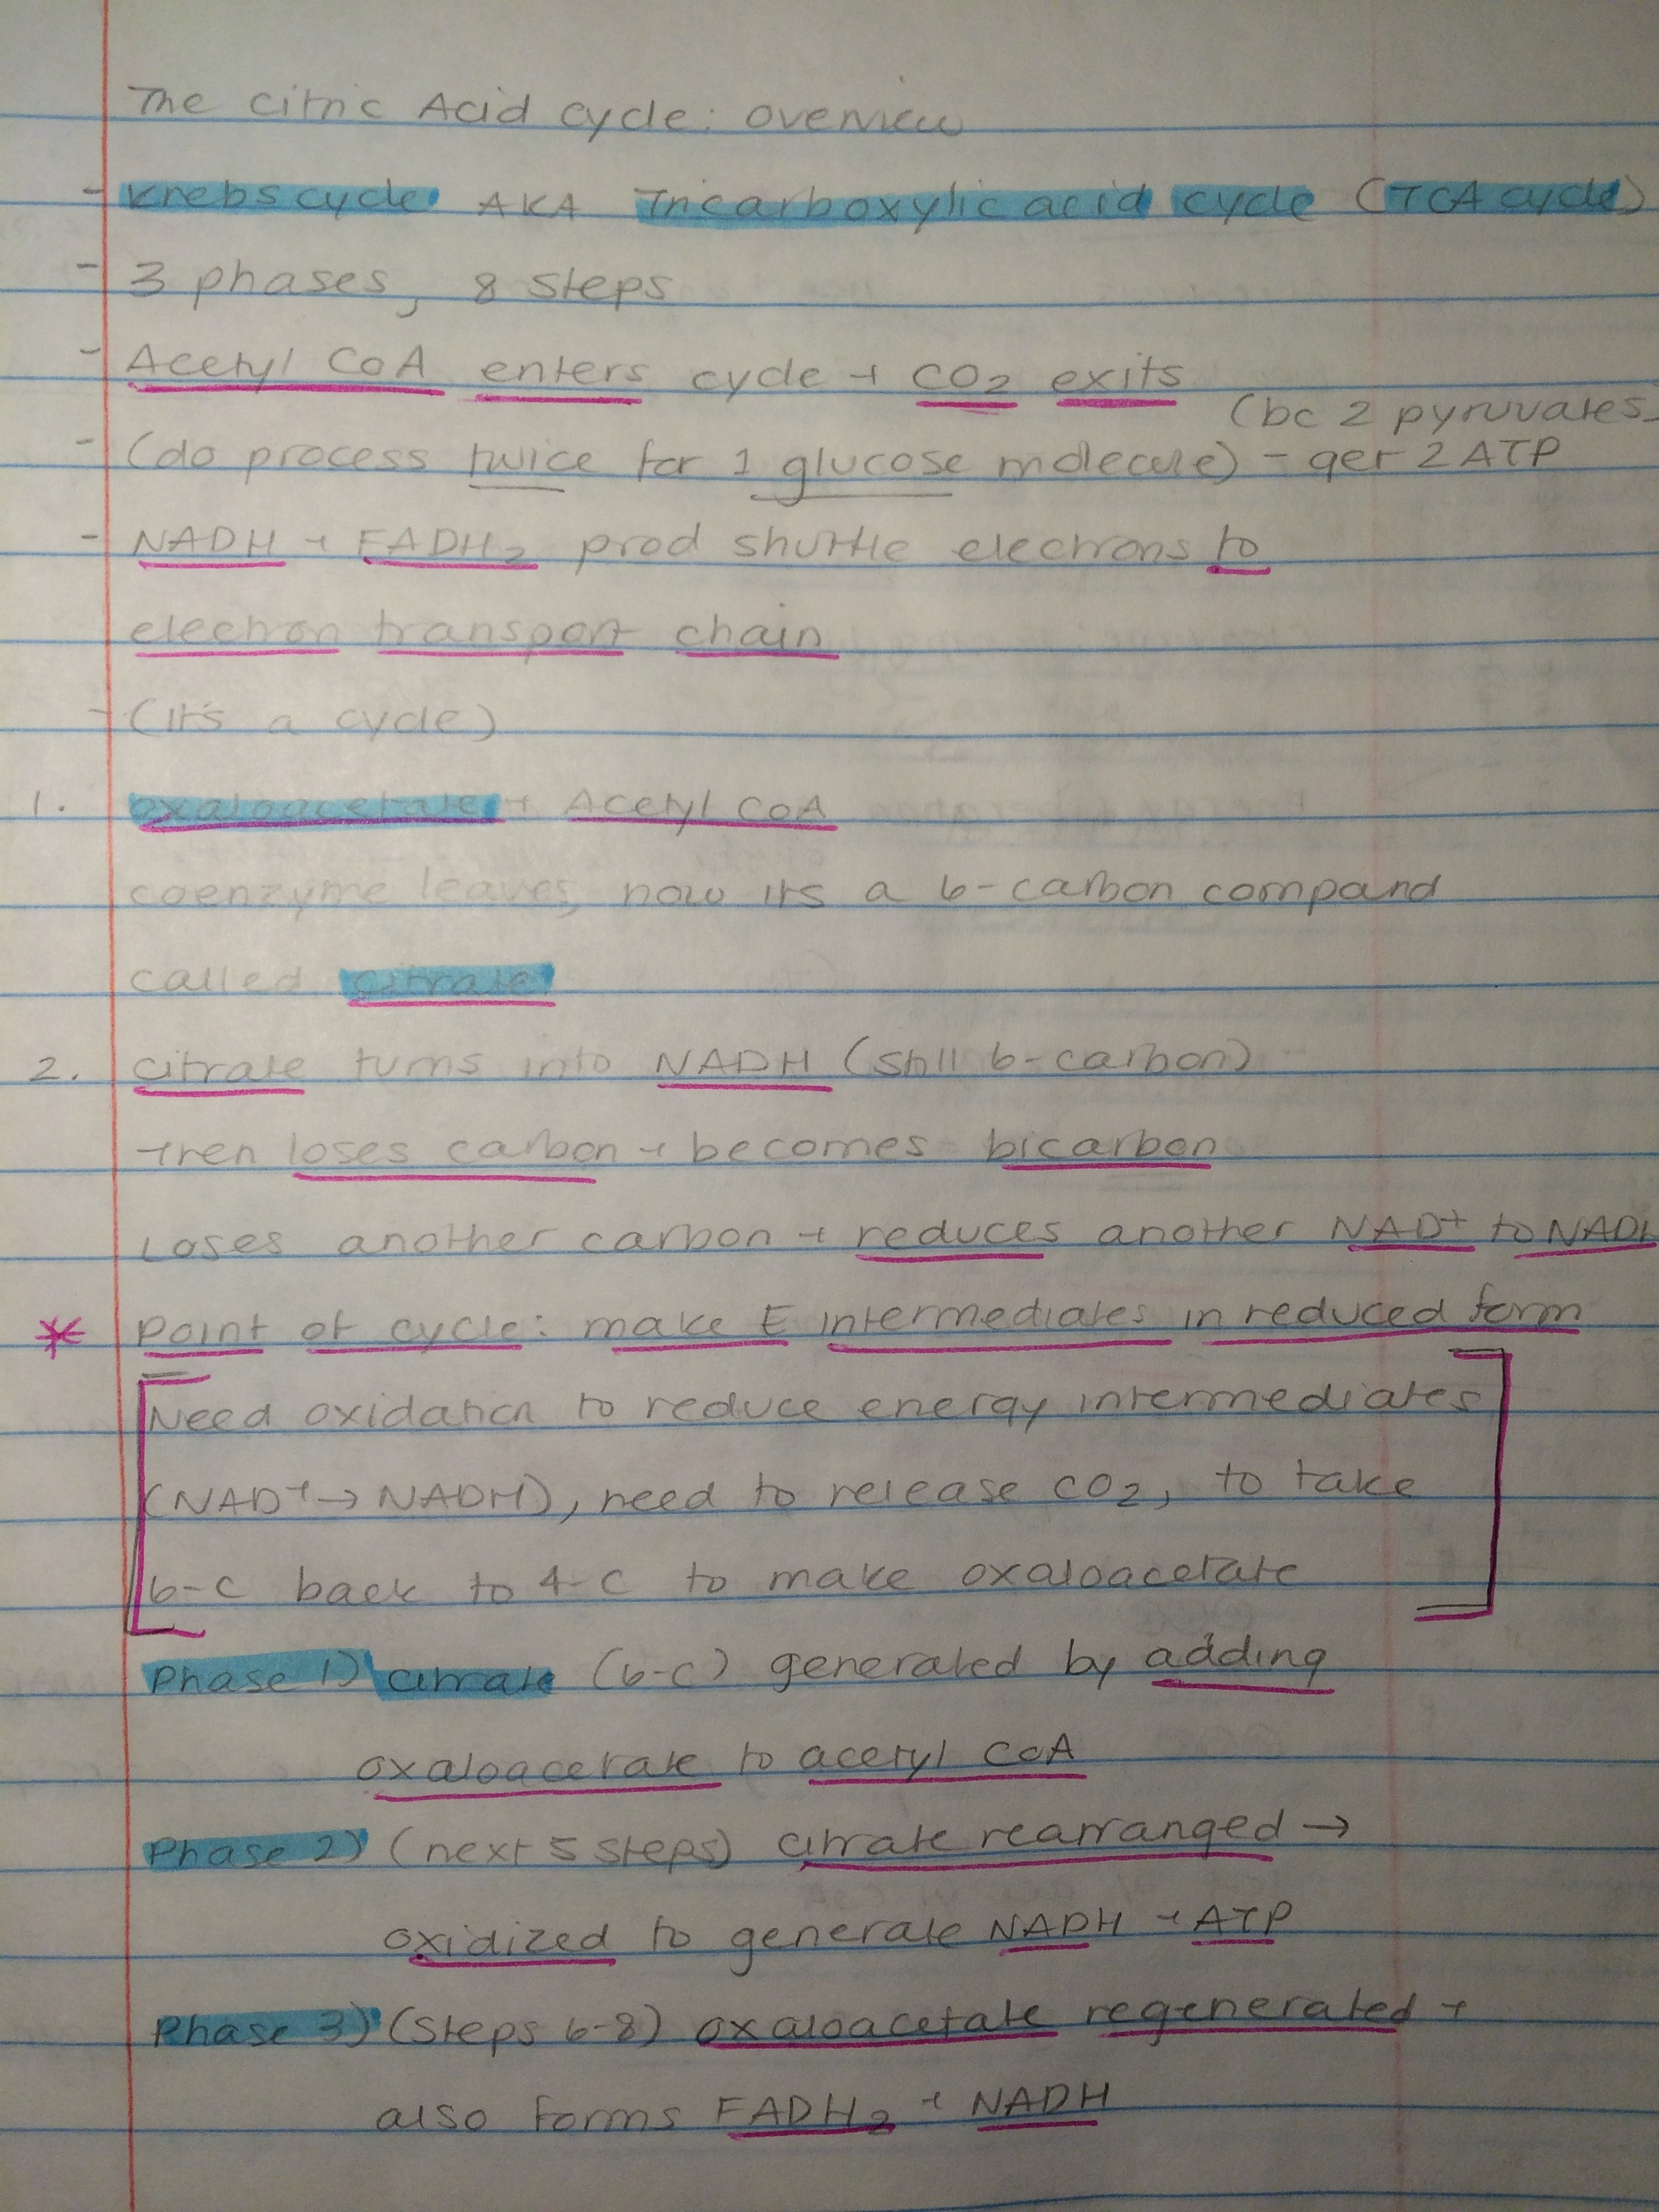 The Citric Acid cycle: overview
- Krebs cycle AKA Tricarboxylic acid cycle (TCA cycle)
- 3 phases, 8 steps
- Acetyl CoA enters cycle + CO2 exits
(bc 2 pyruvates
- (do process twice for 1 glucose molecule) - get 2 ATP
- NADH + FADH2 prod shuttle electrons to
electron transport chain
- (it's a cycle)
1. oxaloacetate + Acetyl CoA
coenzyme leaves, now its a 6-carbon compound
called citrate
2. citrate turns into NADH (still 6-carbon)
then loses carbon + becomes bicarbon
Loses another carbon + reduces another NAD+ to NADH
* Point of cycle: make E intermediates in reduced form
[Need oxidation to reduce energy intermediates
(NAD+ → NADH), need to release CO2, to take
6-C back to 4-C to make oxaloacetate]
Phase 1) citrate (6-C) generated by adding
oxaloacetate to acetyl CoA
Phase 2) (next 5 steps) citrate rearranged →
oxidized to generate NADH + ATP
Phase 3) (steps 6-8) oxaloacetate regenerated +
also forms FADH2 + NADH